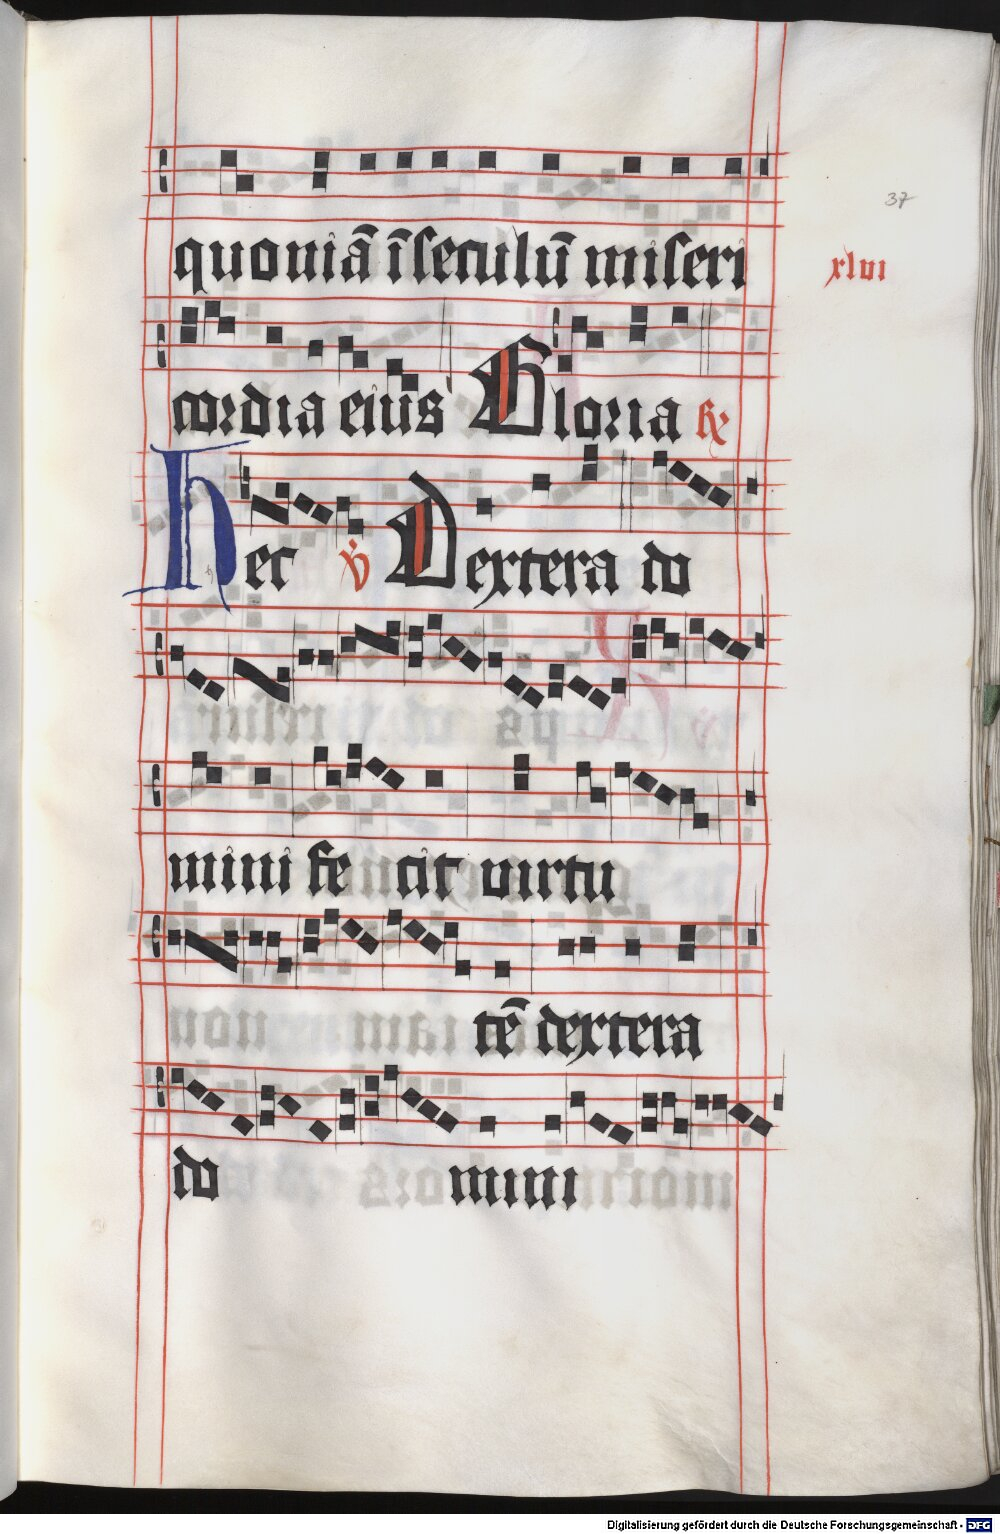 37
quoniā ī seculū miseri
xlvi
cordia eius Gloria
Hec Dextera do
mini fe cit virtu
tē dextera
do mini
Digitalisierung gefördert durch die Deutsche Forschungsgemeinschaft - DFG